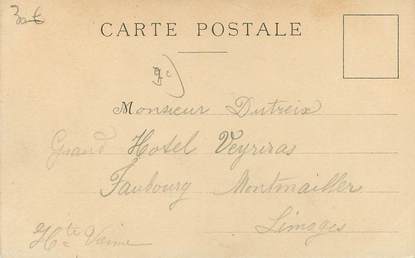 CARTE POSTALE
Monsieur Dutreix
Grand Hotel Veyriras
Faubourg Montmailler
Limoges
Hte Vienne